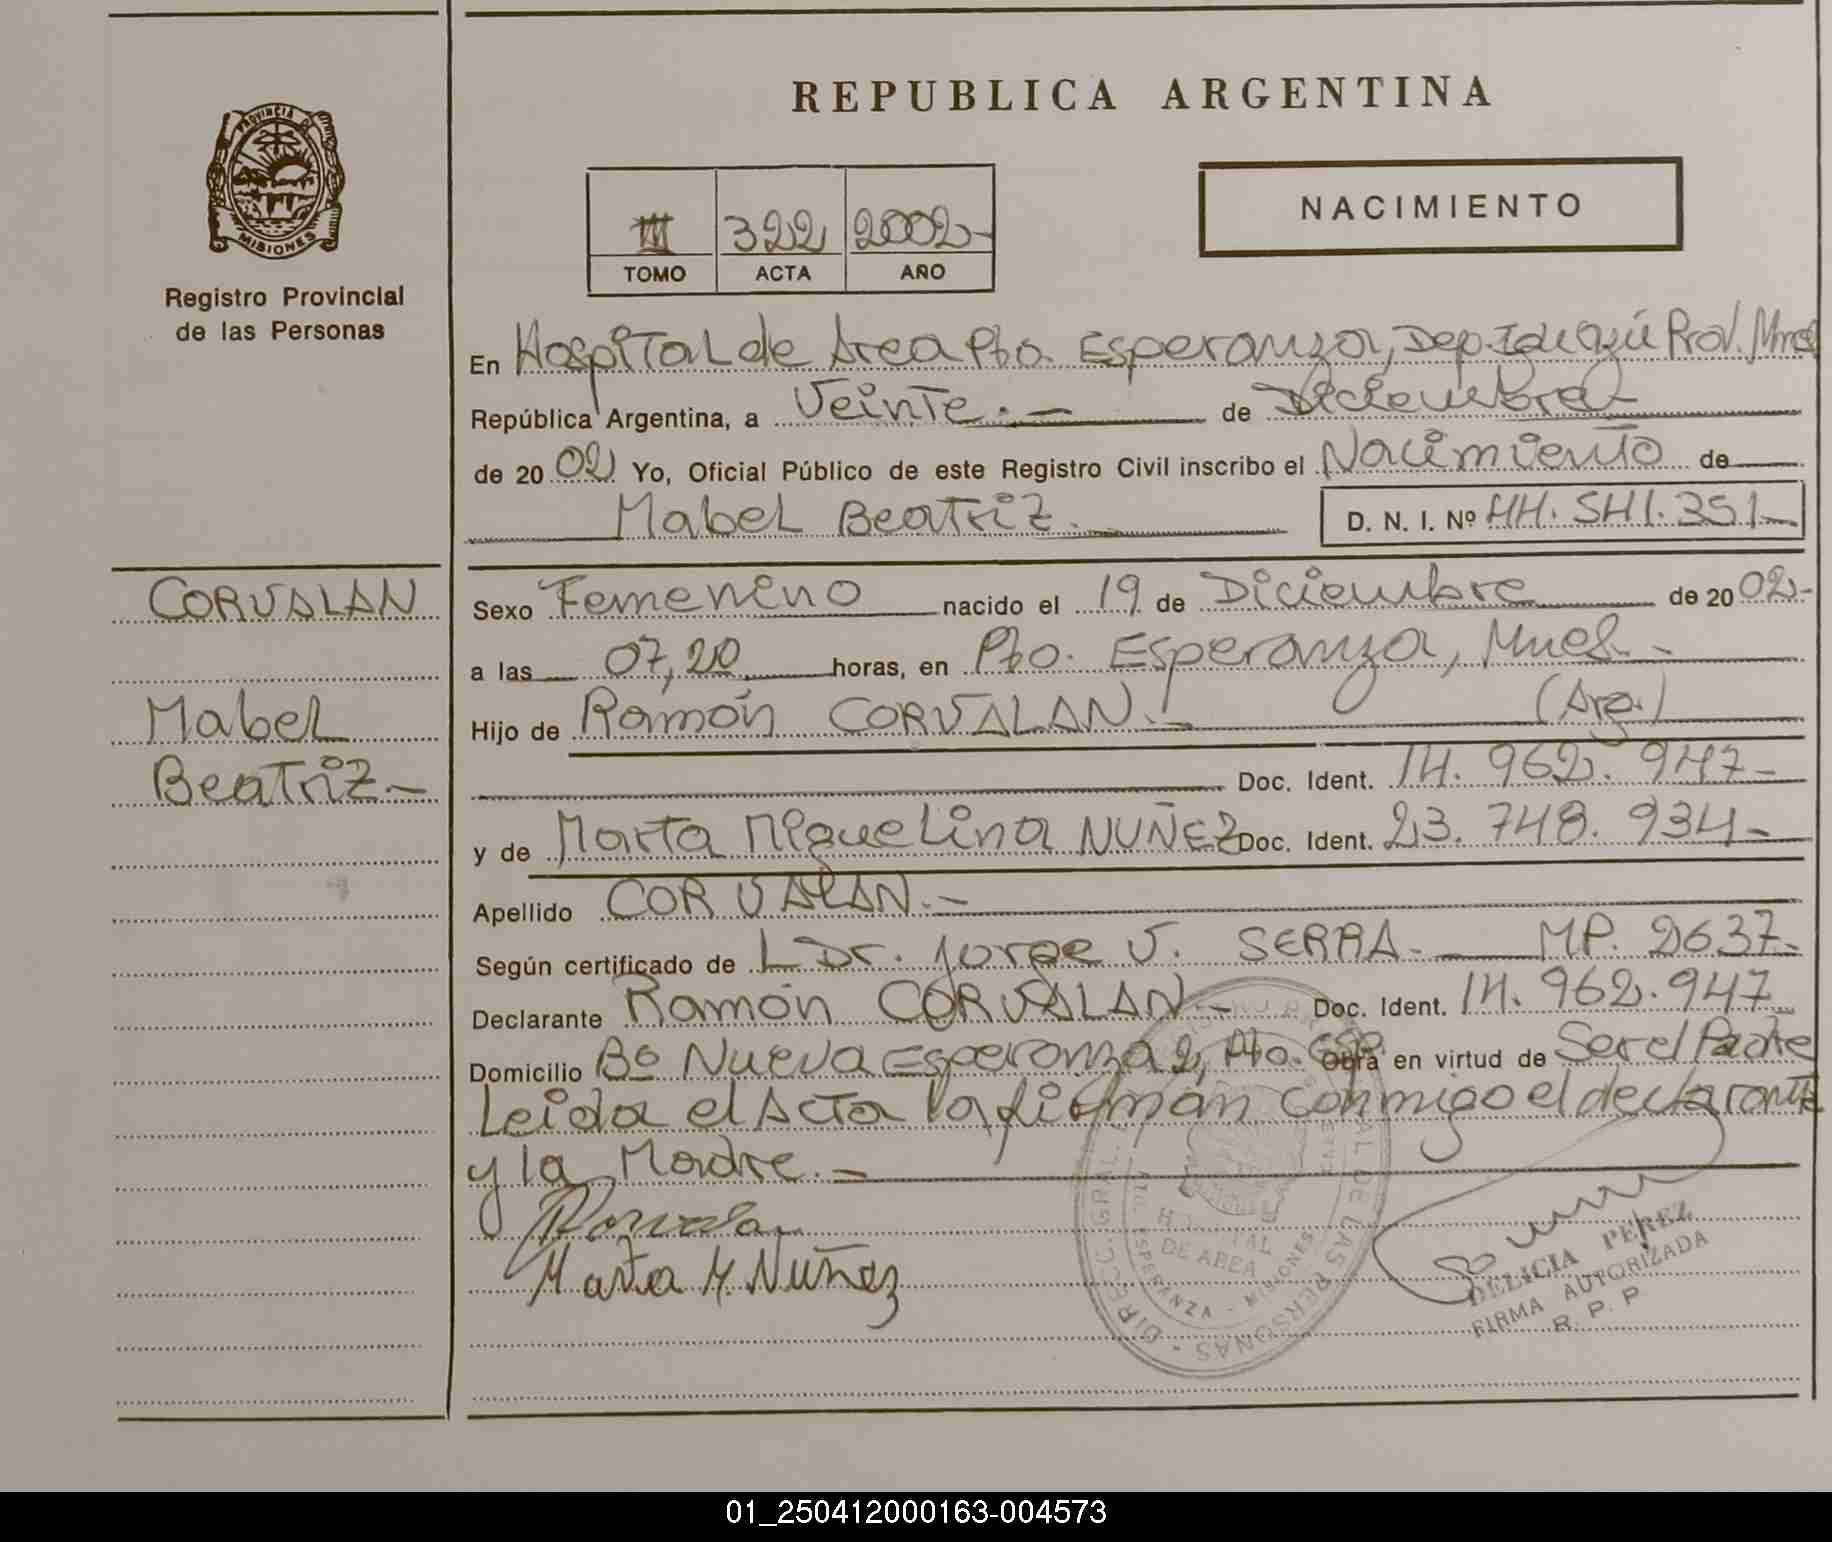 REPUBLICA ARGENTINA
PROVINCIA DE
MISIONES
Registro Provincial
de las Personas
III 322 2002-
TOMO ACTA AÑO
NACIMIENTO
En Hospital de Area Pto. Esperanza, Dep. Iguazú Prov. Mnes
República Argentina, a Veinte.- de Diciembre
de 2002 Yo, Oficial Público de este Registro Civil inscribo el Nacimiento de
Mabel Beatriz.- D. N. I. Nº 44.541.351-
CORVALAN
Mabel
Beatriz-
Sexo Femenino nacido el 19 de Diciembre de 2002-
a las 07,20 horas, en Pto. Esperanza, Mnes.-
Hijo de Ramón CORVALAN.- (Arg.)
Doc. Ident. 14.962.947-
y de Marta Miguelina NUÑEZ Doc. Ident. 23.748.934-
Apellido CORVALAN.-
Según certificado de L Dr. Jorge V. SERRA- MP. 2637-
Declarante Ramón CORVALAN- Doc. Ident. 14.962.947
Domicilio Bº Nueva Esperanza 2, Pto. Esp. Obra en virtud de Ser el Padre
Leida el Acta la firman conmigo el declarante
y la Madre.-
Marta M. Nuñez
HOSPITAL
DE AREA
PTO. ESPERANZA - MISIONES
DELICIA PEREZ
FIRMA AUTORIZADA
R. P. P.
01_250412000163-004573